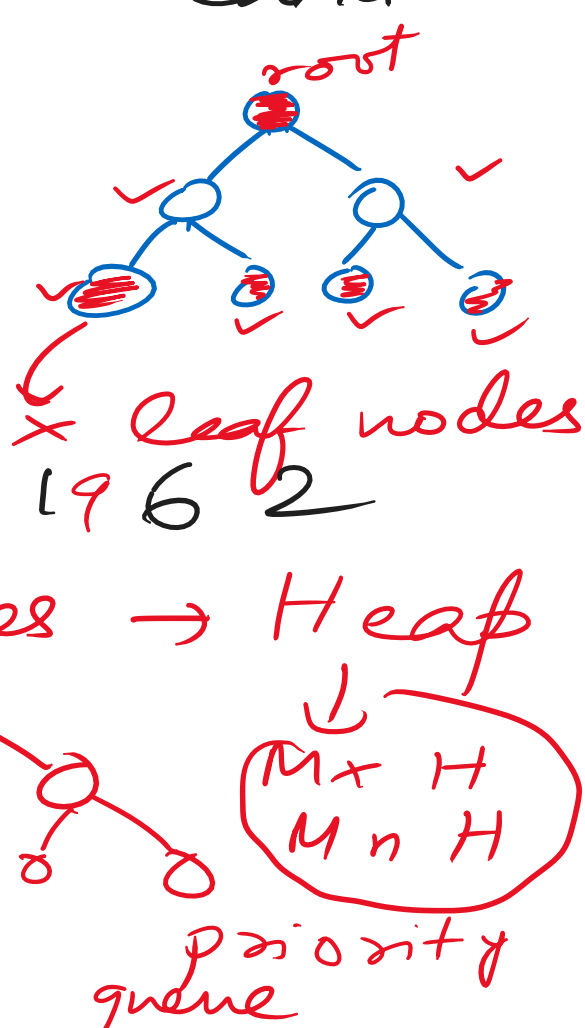 root
leaf nodes
1962
es → Heap
Mx H
Mn H
priority
queue